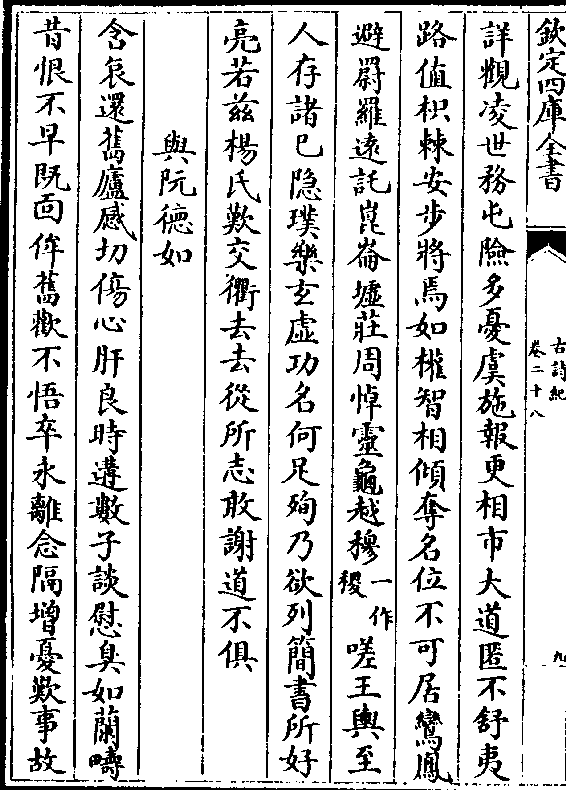 欽定四庫全書
古詩紀
卷二十八
九
詳觀凌世務屯險多憂虞施報更相市大道匿不舒夷
路值枳棘安步將焉如權智相傾奪名位不可居鸞鳳
避罻羅遠託崑崙墟莊周悼靈龜越穆一作稷嗟王輿至
人存諸已隐璞樂玄虚功名何足殉乃欲列簡書所好
亮若兹楊氏歎交衢去去從所志敢謝道不俱
與阮德如
含哀還舊廬感切傷心肝良時遘數子談慰臭如蘭疇
昔恨不早既面侔舊歡不悟卒永離念隔增憂歎事故